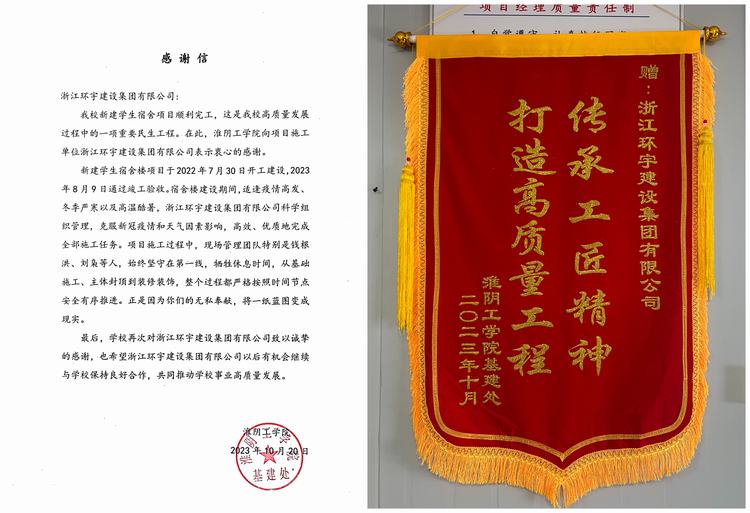 感谢信
浙江环宇建设集团有限公司：
我校新建学生宿舍项目顺利完工，这是我校高质量发展
过程中的一项重要民生工程。在此，淮阴工学院向项目施工
单位浙江环宇建设集团有限公司表示衷心的感谢。
新建学生宿舍楼项目于2022年7月30日开工建设，2023
年8月9日通过竣工验收。宿舍楼建设期间，适逢疫情高发、
冬季严寒以及高温酷暑，浙江环宇建设集团有限公司科学组
织管理，克服新冠疫情和天气因素影响，高效、优质地完成
全部施工任务。项目施工过程中，现场管理团队特别是钱根
洪、刘枭等人，始终坚守在第一线，牺牲休息时间，从基础
施工、主体封顶到装修装饰，整个过程都严格按照时间节点
安全有序推进。正是因为你们的无私奉献，将一纸蓝图变成
现实。
最后，学校再次对浙江环宇建设集团有限公司致以诚挚
的感谢，也希望浙江环宇建设集团有限公司以后有机会继续
与学校保持良好合作，共同推动学校事业高质量发展。
淮阴工学院
2023年10月20日
淮阴工学院
基建处
项目经理质量责任制
赠：浙江环宇建设集团有限公司
传承工匠精神
打造高质量工程
淮阴工学院基建处
二〇二三年十月